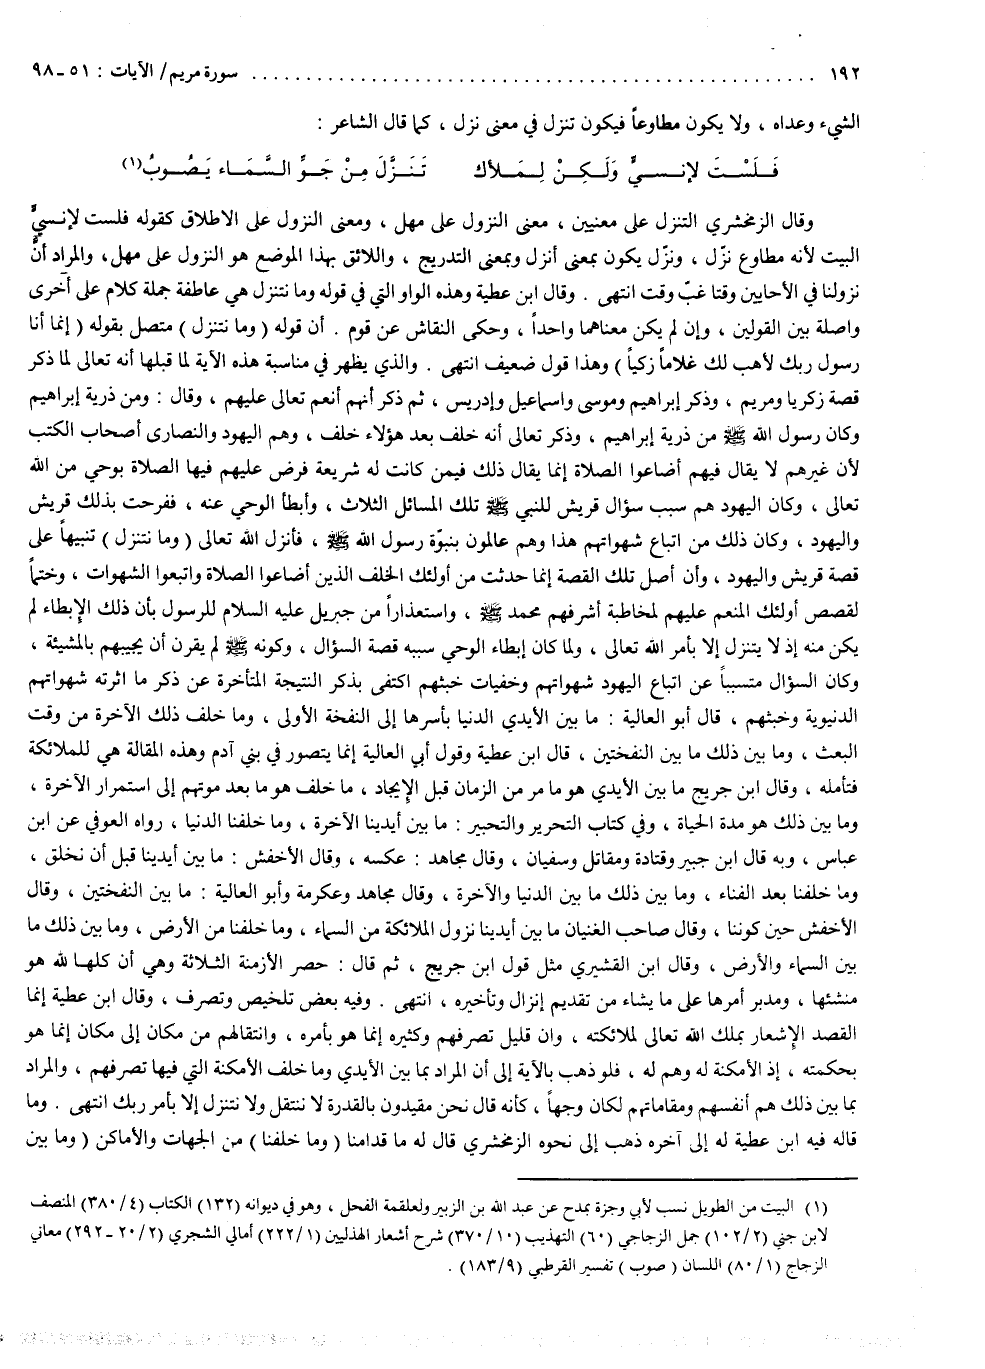 ١٩٢ ........................................ سورة مريم/ الآيات : ٥١ـ٩٨
الشيء وعداه ، ولا يكون مطاوعاً فيكون تنزل في معنى نزل ، كما قال الشاعر :
فَلَسْتَ لإنسيٍّ وَلَكِنْ لِمَلأك تَنَزَّلَ مِنْ جَوِّ السَّمَاء يَصُوبُ(١)
وقال الزمخشري التنزل على معنيين ، معنى النزول على مهل ، ومعنى النزول على الاطلاق كقوله فلست لإنسيٍّ
البيت لأنه مطاوع نزّل ، ونزّل يكون بمعنى أنزل وبمعنى التدريج ، واللائق بهذا الموضع هو النزول على مهل، والمراد أنَّ
نزولنا في الأحايين وقتا غبّ وقت انتهى . وقال ابن عطية وهذه الواو التي في قوله وما نتنزل هي عاطفة جملة كلام على أخرى
واصلة بين القولين ، وإن لم يكن معناهما واحداً ، وحكى النقاش عن قوم . أن قوله ( وما نتنزل ) متصل بقوله ( إنما أنا
رسول ربك لأهب لك غلاماً زكياً ) وهذا قول ضعيف انتهى . والذي يظهر في مناسبة هذه الآية لما قبلها أنه تعالى لما ذكر
قصة زكريا ومريم ، وذكر إبراهيم وموسى واسماعيل وإدريس ، ثم ذكر أنهم أنعم تعالى عليهم ، وقال : ومن ذرية إبراهيم
وكان رسول الله ﷺ من ذرية إبراهيم ، وذكر تعالى أنه خلف بعد هؤلاء خلف ، وهم اليهود والنصارى أصحاب الكتب
لأن غيرهم لا يقال فيهم أضاعوا الصلاة إنما يقال ذلك فيمن كانت له شريعة فرض عليهم فيها الصلاة بوحي من الله
تعالى ، وكان اليهود هم سبب سؤال قريش للنبي ﷺ تلك المسائل الثلاث ، وأبطأ الوحي عنه ، ففرحت بذلك قريش
واليهود ، وكان ذلك من اتباع شهواتهم هذا وهم عالمون بنبوّة رسول الله ﷺ ، فأنزل الله تعالى ( وما نتنزل ) تنبيهاً على
قصة قريش واليهود ، وأن أصل تلك القصة إنما حدثت من أولئك الخلف الذين أضاعوا الصلاة واتبعوا الشهوات ، وختماً
لقصص أولئك المنعم عليهم لمخاطبة أشرفهم محمد ﷺ ، واستعذاراً من جبريل عليه السلام للرسول بأن ذلك الإبطاء لم
يكن منه إذ لا يتنزل إلا بأمر الله تعالى ، ولما كان إبطاء الوحي سببه قصة السؤال ، وكونه ﷺ لم يقرن أن يجيبهم بالمشيئة ،
وكان السؤال متسبباً عن اتباع اليهود شهواتهم وخفيات خبثهم اكتفى بذكر النتيجة المتأخرة عن ذكر ما اثرته شهواتهم
الدنيوية وخبثهم ، قال أبو العالية : ما بين الأيدي الدنيا بأسرها إلى النفخة الأولى ، وما خلف ذلك الآخرة من وقت
البعث ، وما بين ذلك ما بين النفختين ، قال ابن عطية وقول أبي العالية إنما يتصور في بني آدم وهذه المقالة هي للملائكة
فتأمله ، وقال ابن جريج ما بين الأيدي هو ما مر من الزمان قبل الإيجاد ، ما خلف هو ما بعد موتهم إلى استمرار الآخرة ،
وما بين ذلك هو مدة الحياة ، وفي كتاب التحرير والتحبير : ما بين أيدينا الآخرة ، وما خلفنا الدنيا ، رواه العوفي عن ابن
عباس ، وبه قال ابن جبير وقتادة ومقاتل وسفيان ، وقال مجاهد : عكسه ، وقال الأخفش : ما بين أيدينا قبل أن نخلق ،
وما خلفنا بعد الفناء ، وما بين ذلك ما بين الدنيا والآخرة ، وقال مجاهد وعكرمة وأبو العالية : ما بين النفختين ، وقال
الأخفش حين كوننا ، وقال صاحب الغنيان ما بين أيدينا نزول الملائكة من السماء ، وما خلفنا من الأرض ، وما بين ذلك ما
بين السماء والأرض ، وقال ابن القشيري مثل قول ابن جريج ، ثم قال : حصر الأزمنة الثلاثة وهي أن كلها لله هو
منشئها ، ومدبر أمرها على ما يشاء من تقديم إنزال وتأخيره ، انتهى . وفيه بعض تلخيص وتصرف ، وقال ابن عطية إنما
القصد الإشعار بملك الله تعالى لملائكته ، وان قليل تصرفهم وكثيره إنما هو بأمره ، وانتقالهم من مكان إلى مكان إنما هو
بحكمته ، إذ الأمكنة له وهم له ، فلو ذهب بالآية إلى أن المراد بما بين الأيدي وما خلف الأمكنة التي فيها تصرفهم ، والمراد
بما بين ذلك هم أنفسهم ومقاماتهم لكان وجهاً ، كأنه قال نحن مقيدون بالقدرة لا ننتقل ولا نتنزل إلا بأمر ربك انتهى . وما
قاله فيه ابن عطية له إلى آخره ذهب إلى نحوه الزمخشري قال له ما قدامنا ( وما خلفنا ) من الجهات والأماكن ( وما بين
(١) البيت من الطويل نسب لأبي وجزة يمدح عن عبد الله بن الزبير ولعلقمة الفحل ، وهو في ديوانه (١٣٢) الكتاب (٣٨٠/٤) المنصف
لابن جني (١٠٢/٢) جمل الزجاجي (٦٠) التهذيب (٣٧٠/١٠) شرح أشعار الهذليين (٢٢٢/١) أمالي الشجري (٢٠/٢ ـ ٢٩٢) معاني
الزجاج (٨٠/١) اللسان ( صوب ) تفسير القرطبي (١٨٣/٩) .